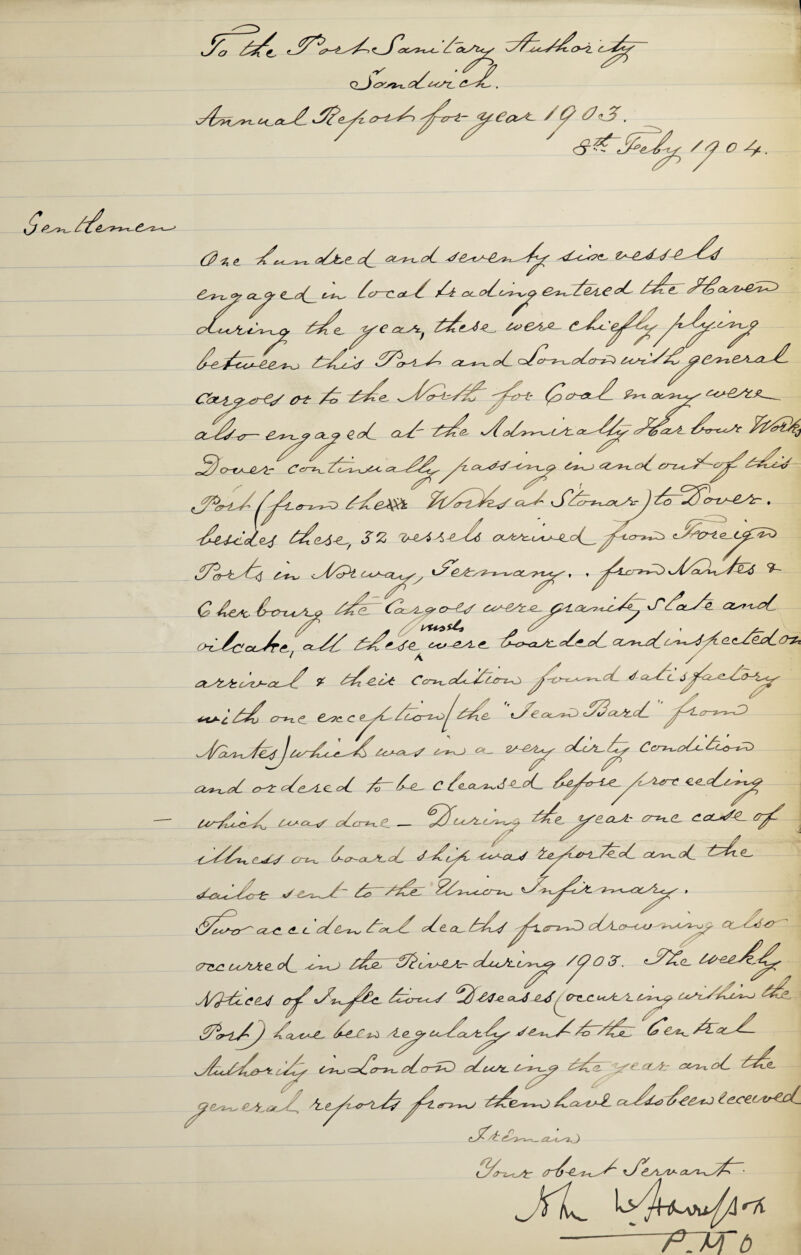 To the Port Sanitary Authority
Sandwich.
Annual Report for year 1903.
8th Feby 1904.
Gentlemen
One hundred and seventy six vessels
engaged in local trading entered the Haven
during the year, these were chiefly plying
between this Port and London with general
Cargoes or to the North for Coal many were
also engaged at the Admiralty Harbour Works
Dover continually passing in and out of this
Port (from the Works at Stonar) to Dover.
besides these, 32 vessels arrived from Foreign
Ports in Norway, Germany, . from Nantes &
Cherbourg the Cargoes were granite, Slate and
vessels
oilcake, all these were boarded and inspected on
arrival & their condition found satisfactory
with one exception (the "Jean Bard" from
Nantes) which was in a very dirty condition
and ordered to be cleansed before proceeding
— which was done — During the year one case of
illness on board ship was reported and the
sailor sent to the Union Infirmary.
Two accidental deaths from drowning also
occurred in the River during 1903. The weekly
Notices of Infectious Diseases (occurring within the
Port) have been regularly sent to the Central
Authority in London during the year and the
general reports from them have also been received
I remain
Your obent Servant.
John
P.M O